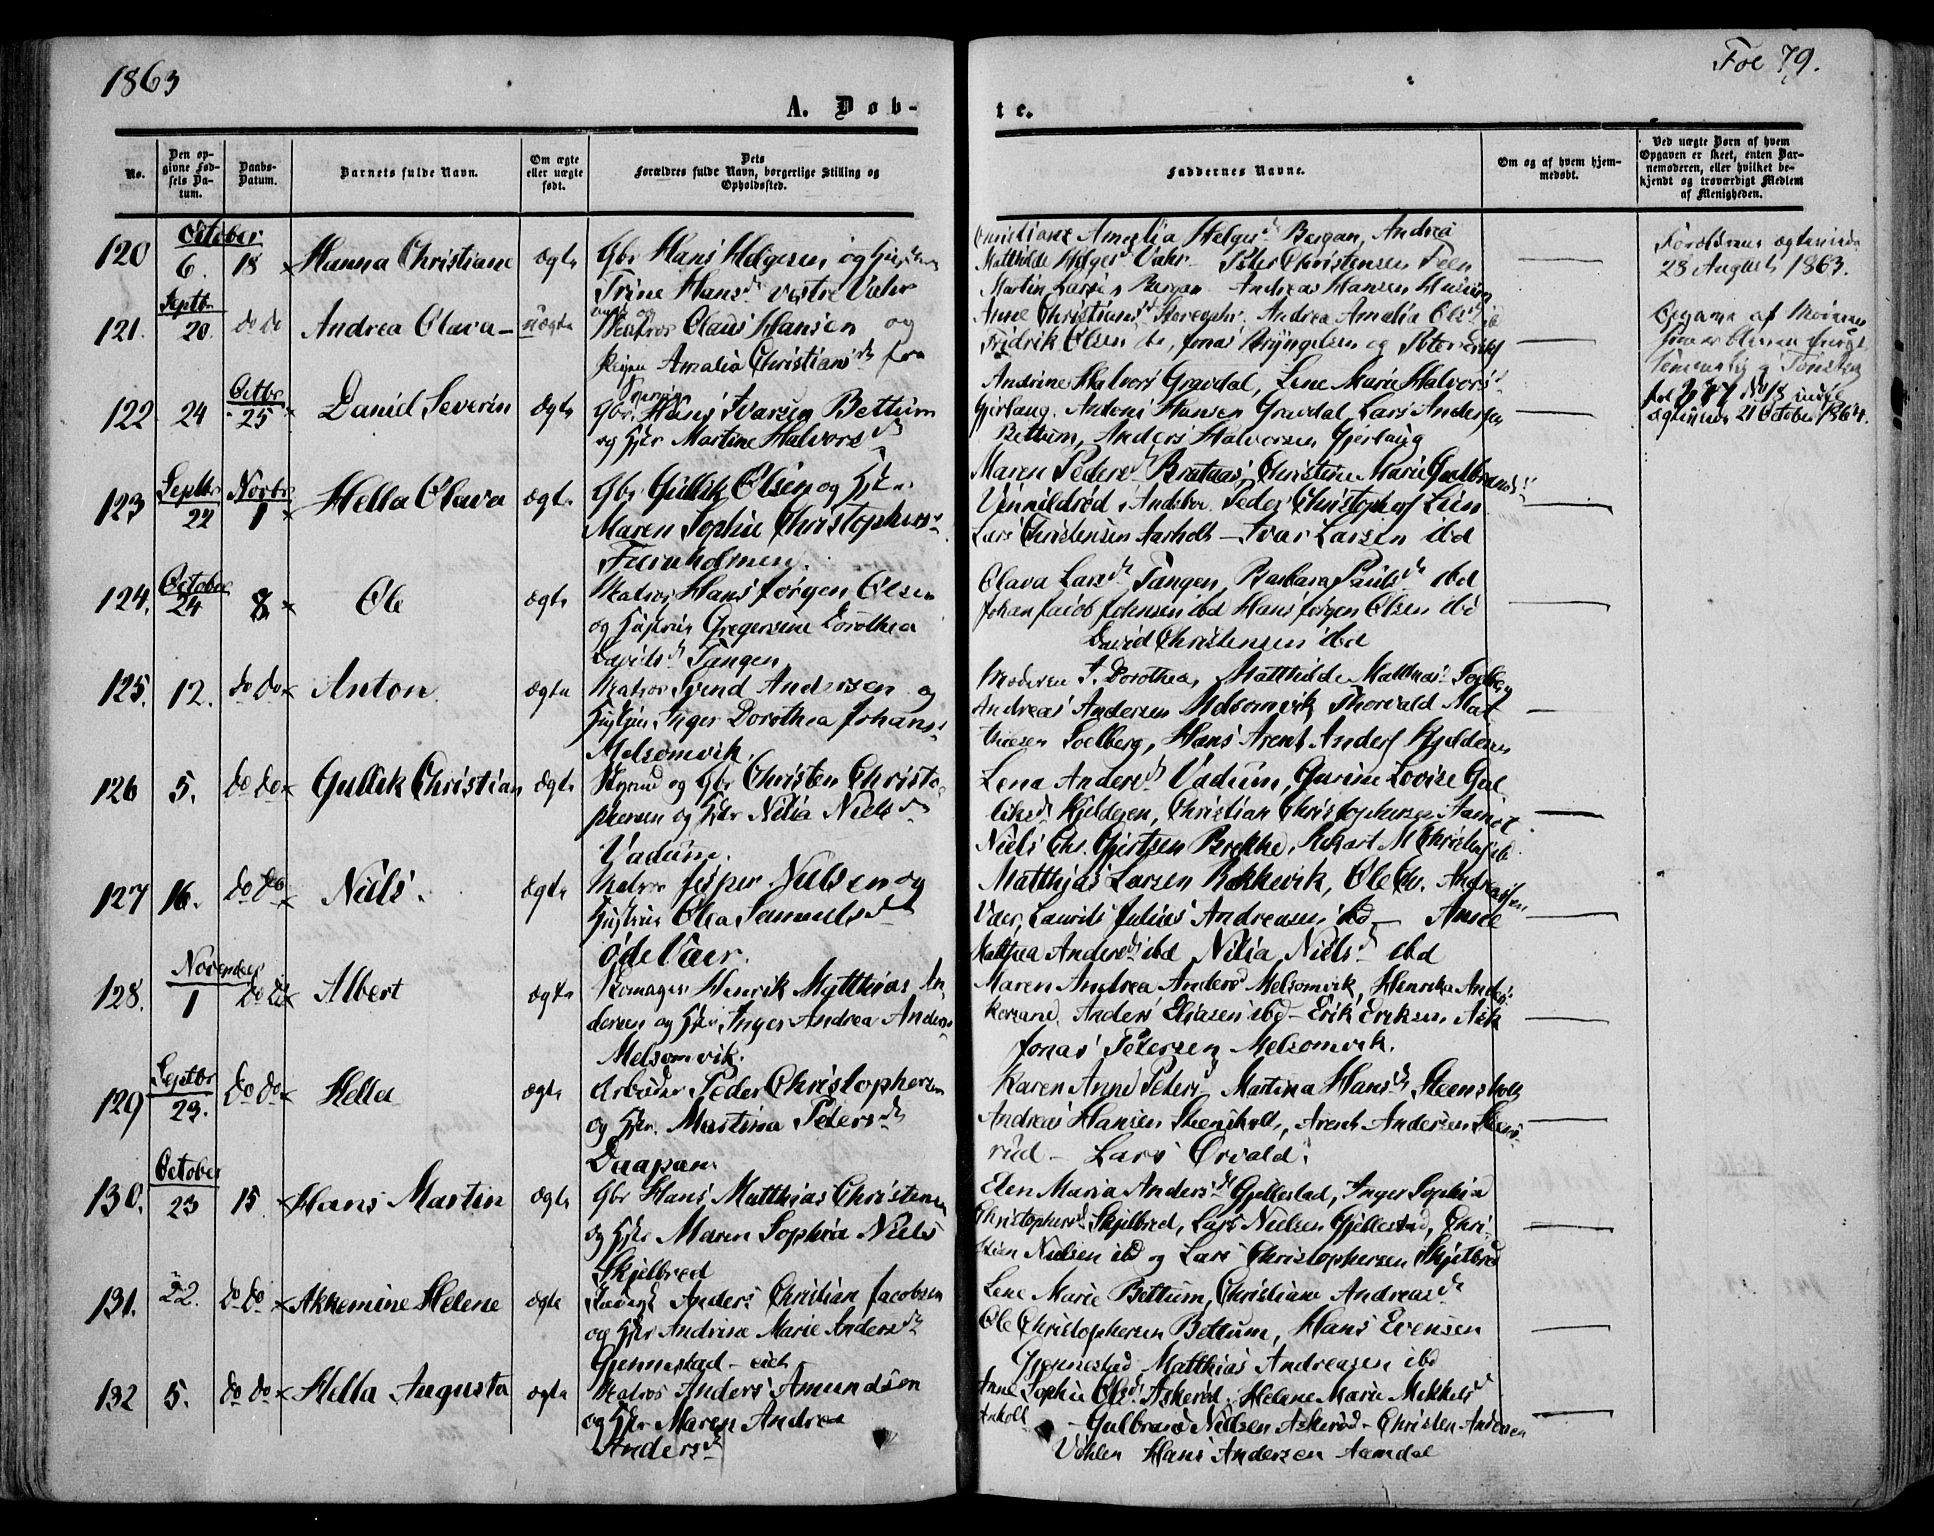 1863
Fol 79.
A. Døb-
te.
No.
Den op-
givne Fød-
sels Da-
tum.
Daabs-
Datum.
Barnets fulde Navn.
Om ægte
eller uægte
født.
Dets
Forældres fulde Navn, borgerlige Stilling og
Opholdsted.
Faddernes Navne.
Om og af hvem hjem-
medøbt.
Ved uægte Børn af hvem
Opgaven er skeet, enten Bar-
nemoderen, eller hvilket be-
kjendt og troværdigt Medlem
af Menigheden.
October
120 6. 18 Hanna Christiane ægte Gbr Hans Helgesen og
Trine Hansd Vestre Valer
Christiane Amalia Helgesd Bergan, Andrea
Mathilde Helgesd Vahr Peter Christensen Foen
Martin Larsen Bergan Andreas Hansen
Forældrene
28 August 1863.
Septbr
121. 20. do do Andrea Olava uægte Matros Claus Hansen og
Pigen Amalia Christiansd fra
Anne Christiansd Andrea Amalia Olsd ibd
Fridrik Olsen ibd, Jonas Bryngelsen og Peter
Opgave af Moderen
fol 287 No 18
21 October 1864.
122. 24 Octbr 25 Daniel Severin ægte Gbr. Hans Ivarsen Bettum
og Hstr Martine Halvorsd
Andrine Halvorsd Gravdal, Lene Marie Halvorsd
Gjerlaug. Antoni Hansen Gravdal Lars Andersen
Bettum, Anders Halvorsen Gjerlaug
123 Septbr 22 Novbr 1 Hella Olava ægte Gbr Gullik Olsen og
Maren Sophie Christophersd
Maren Pedersd Brataas, Christine Marie Gulbrandsd
Andebo Peder Christophersen Lien
Lars Christensen Aarholt — Ivar Larsen ibd
124. October 24 8. Ole ægte Matros Hans Jørgen Olsen
og Hustrue Gregersine Dorothea
Davidsd Tangen
Olava Larsd Tangen, Barbara Paulsd ibd
Johan Jacob Johnsen ibd Hans Jørgen Olsen ibd
David Christensen ibd
125. 12. do do Anton ægte Matros Svend Andersen og
Hustrue Inger Dorothea Johansd
Melsomvik.
Moderen I. Dorothea, Matthilde Matthiasd Solberg
Andreas Andersen Melsomvik Thorvald Mat-
thisen Soelberg, Hans Arent Anders Kjeldsen
126 5. do do Gullik Christian ægte Styrmd og Gbr Christen Christo-
phersen og Hstr Nilia Nielsd
Vadum.
Lena Andersd Vadum, Gurine Lovise Gul-
liksd Kjeldsen, Christian Christophersen Aamot.
Niels Chr. Gjertsen Brekke,
127 16. do do Niels. ægte Matros Jesper Nielsen og
Hustrue Olea Samuelsd
øde Vaer.
Matthias Larsen Rakkevik, Ole Chr. Andreassen
Vaer, Laurits Julius Andreasen ibd — Anne
Matthea Andersd ibd Nilia Nielsd ibd
November
128. 1 do do Albert ægte Skomager Henrik Matthias An-
dersen og Hstr Inger Andrea Anders
Melsomvik.
Maren Andrea Andersd Melsomvik, Henrika Andersd
Anders Eliasen ibd — Erik Eriksen Ask
Jonas Petersen Melsomvik.
129 Septbr 23. do do Hella ægte Arbeider Peder Christophersen
og Hstr. Martina Petersd
Karen Anne Petersd Martina Hansd Steensholt
Andreas Hansen Steensholt, Arent Andersen Steens-
rud — Lars Orvald.
130. October 23 15 Hans Martin ægte Gbr Hans Matthias Christensen
og Hstr Maren Sophia Niels
Skjelbred
Elen Maria Andersd Gjellestad, Inger Sophia
Christophersd Skjelbred, Lars Nielsen Gjellestad, Chri-
stian Nielsen ibd og Lars Christophersen Skjelbred
131. 22. do do Akkemine Helene ægte Anders Christian Jacobsen
og Hstr Andrine Marie Andersd
Gjennestad
Lene Marie Bettum, Christiane Andreasd
Ole Christophersen Bettum, Hans Evensen
Gjennestad Matthias Andreasen ibd
132 5. do do Hella Augusta ægte Matros Anders Amundsen
og Hstr Maren Andrea
Andersd
Anne Sophie Olsd Askerød, Helene Marie Mikkelsd
Anholt — Gulbrand Nielsen Askerød — Christen Andersen
Vihlen Hans Andersen Aamdal